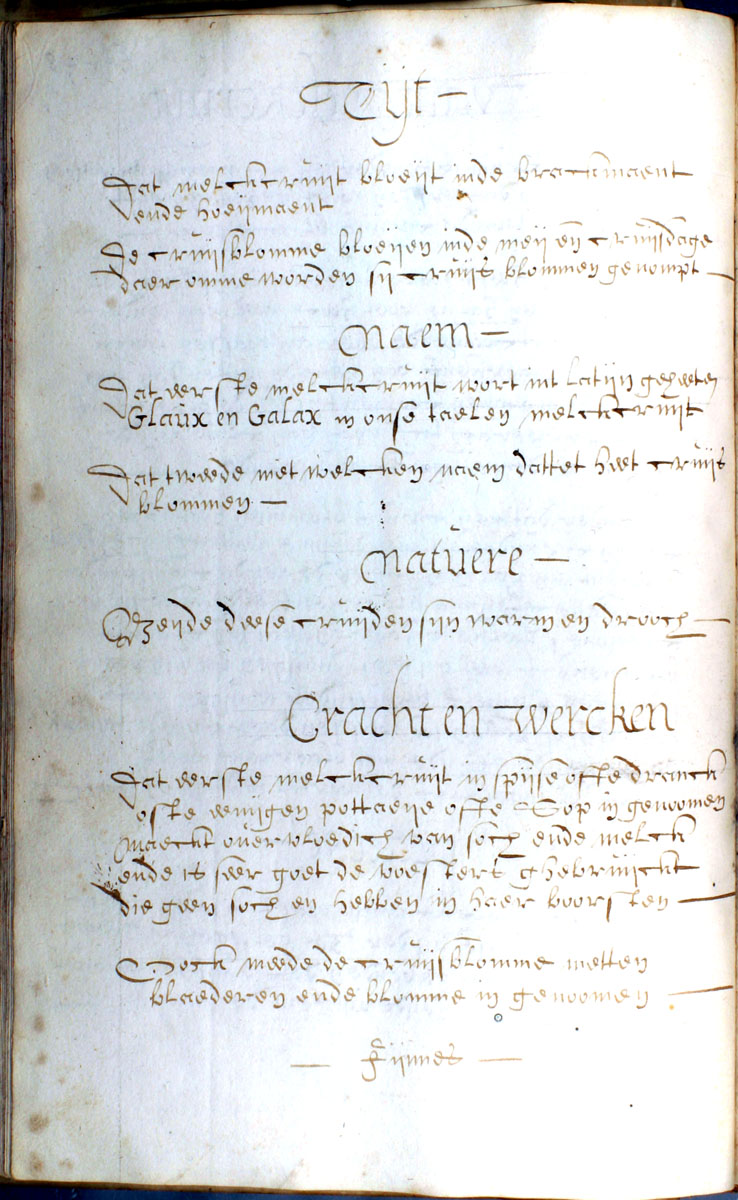 Tijt –
Dat melckcruijt bloeijt inde brackmaent
ende hoeijmaent
De cruijsblomme bloeijen inde meij en cruijsdage
daer omme worden sij cruijs blommen genompt –
Naem –
Dat eerste melckcruijt wort int latijn geheeten
Glaux en Galax in onse taelen melckcruijt
Dat tweede met welcken naem dattet heet cruijs
blommen –
Natuere –
Beijde deese cruijden sijn warm en drooch –
Cracht en wercken
Dat eerste melckcruijt in spijse ofte dranck
ofte eenijgen pottaeije ofte Sop in genoomen
Maeckt overvloedich van soch ende melck
ende is seer goet de voesters ghebruijckt
die geen soch en hebben in haer boorsten –
Oock meede de cruijsblomme metten
blaederen ende blomme in genoomen –
– Fijnnes –